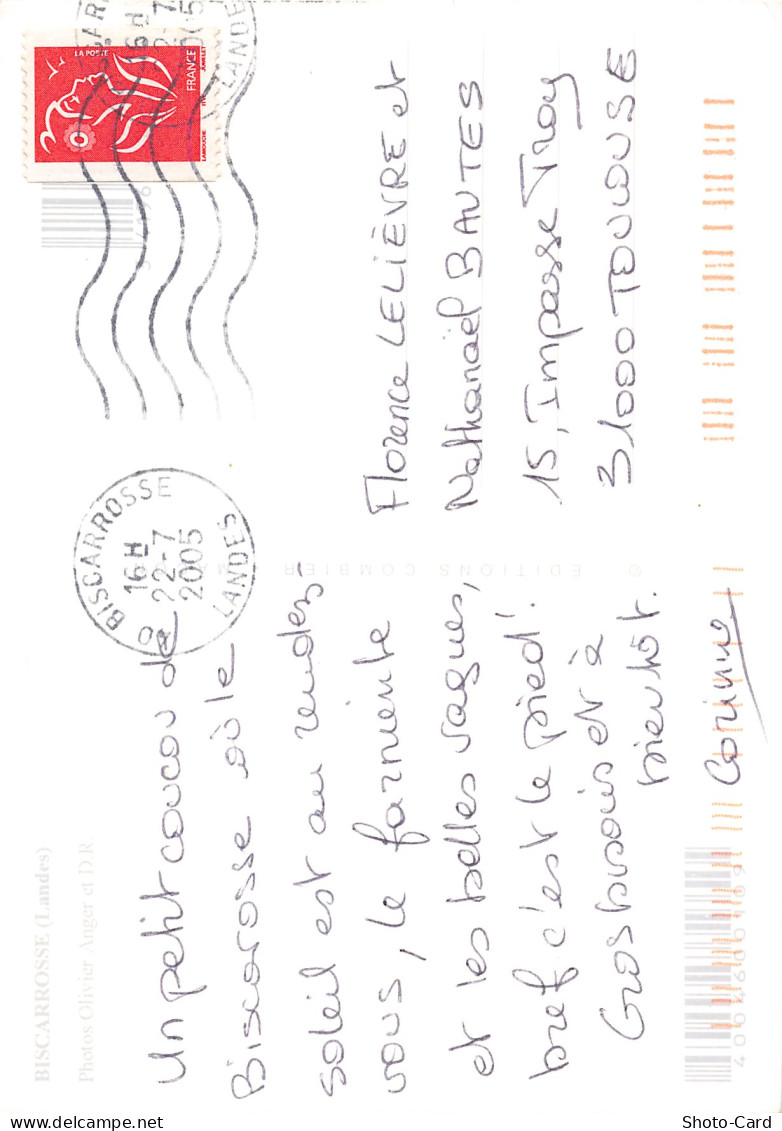 BISCARROSSE (Landes)
Photos Olivier Anger et D.R.
Un petit coucou de
Biscarosse où le
soleil est au rendez-
vous, le farniente
et les belles vagues,
bref c'est le pied!
Gros bisous et à
bientôt.
Corinne
© EDITIONS COMBIER MACON
BISCARROSSE
16 H
22-7
2005
LANDES
LA POSTE
FRANCE
LAMOUCHE
ITVF
16 H
22-7
2005
LANDES
Florence LELIÈVRE et
Nathanaël BAUTES
15, Impasse Troy
31000 TOULOUSE
Shoto-Card